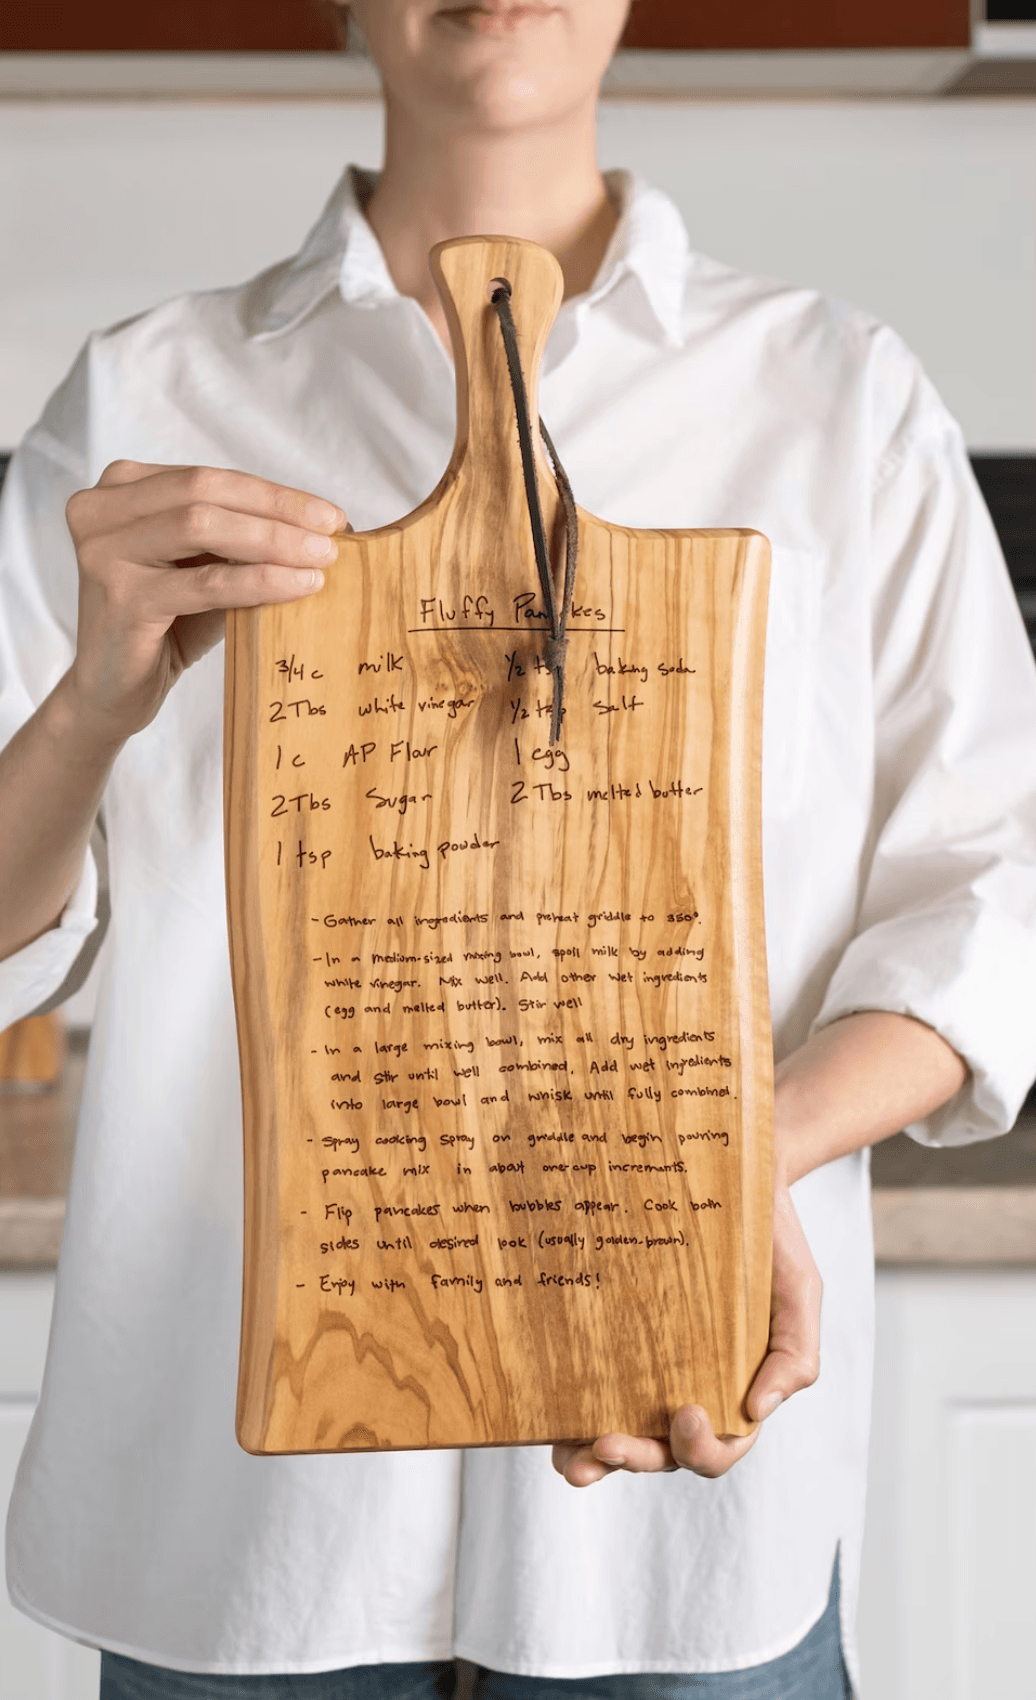 Fluffy Pancakes
3/4 c milk 1/2 tsp baking soda
2 Tbs white vinegar 1/2 tsp salt
1 c AP Flour 1 egg
2 Tbs Sugar 2 Tbs melted butter
1 tsp baking powder
- Gather all ingredients and preheat griddle to 350°.
- In a medium-sized mixing bowl, spoil milk by adding
white vinegar. Mix well. Add other wet ingredients
(egg and melted butter). Stir well
- In a large mixing bowl, mix all dry ingredients
and stir until well combined. Add wet ingredients
into large bowl and whisk until fully combined.
- Spray cooking spray on griddle and begin pouring
pancake mix in about one-cup increments.
- Flip pancakes when bubbles appear. Cook both
sides until desired look (usually golden-brown).
- Enjoy with family and friends!